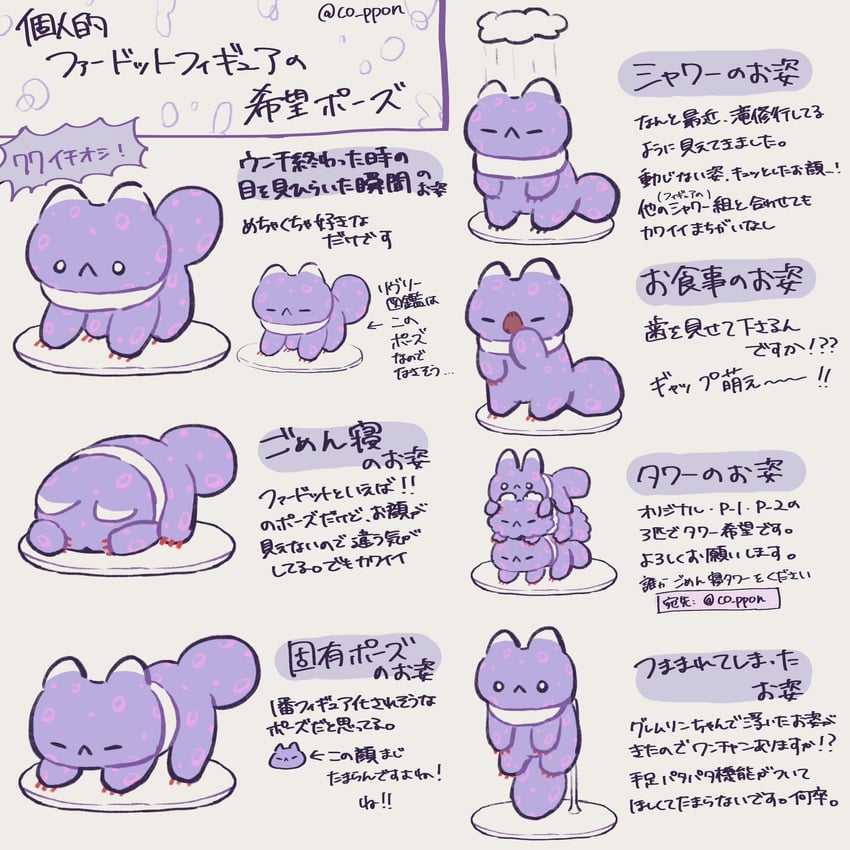 個人的
ファードットフィギュアの
希望ポーズ
@co_ppon
ワイチオシ!
ウンチ終わった時の
目を見ひらいた瞬間のお姿
めちゃくちゃ好きな
だけです
リヴリー
図鑑は
←この
ポーズ
なので
なさそう…
ごめん寝
のお姿
ファードットといえば!!
のポーズだけど、お顔が
見えないので違う気が
してる。でもカワイイ
固有ポーズ
のお姿
1番フィギュア化されそうな
ポーズだと思ってる。
←この顔まじ
たまらんですよね!
ね!!
シャワーのお姿
なんと最近、滝修行してる
ように見えてきました。
動じない姿、キュッとしたお顔…!
(フィギュアの)
他のシャワー組と合わせても
カワイイまちがいなし
お食事のお姿
歯を見せて下さるん
ですか!??
ギャップ萌え〜〜!!
タワーのお姿
オリジナル・P-1・P-2の
3匹でタワー希望です。
よろしくお願いします。
誰か ごめん寝タワーをください
宛先:@co_ppon
つままれてしまった
お姿
グレムリンちゃんで浮いたお姿が
きたのでワンチャンありますか!?
手足パタパタ機能がついて
ほしくてたまらないです。何卒。